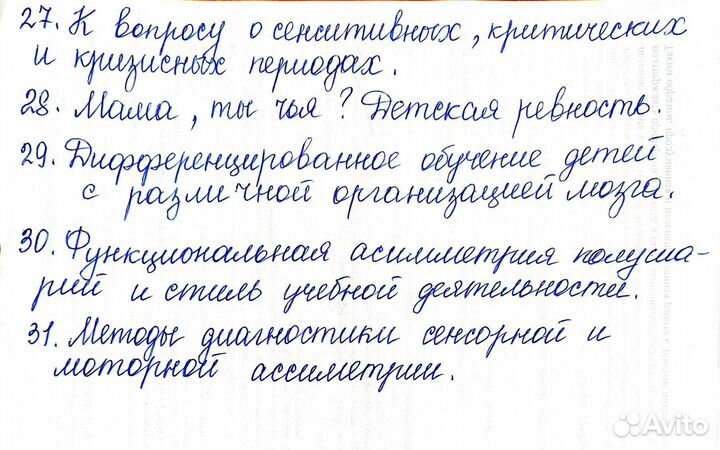 27. К вопросу о сенситивных, критических
и кризисных периодах.
28. Мама, ты чья? Детская ревность.
29. Дифференцированное обучение детей
с различной организацией мозга.
30. Функциональная асимметрия полуша-
рий и стиль учебной деятельности.
31. Методы диагностики сенсорной и
моторной ассиметрии.
Avito